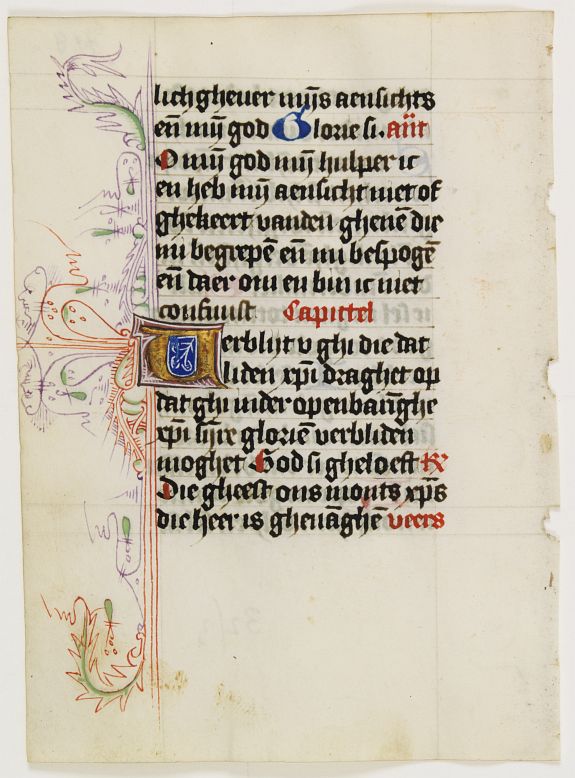 lichgheuer mijs aensichts
eñ mij god Glorie si. añt
O mij god mij hulper ic
en heb mij aensicht niet of
ghekeert vanden ghenē die
mi begrepē eñ mi bespogē
eñ daer om en bin ic niet
confuust Capittel
Verblijt v ghi die dat
liden xpi draghet op
dat ghi inder openbarīghe
xpi sijre gloriē verbliden
moghet God si gheloeft R
Die gheest ons monts xps
die heer is gheuāghē veers